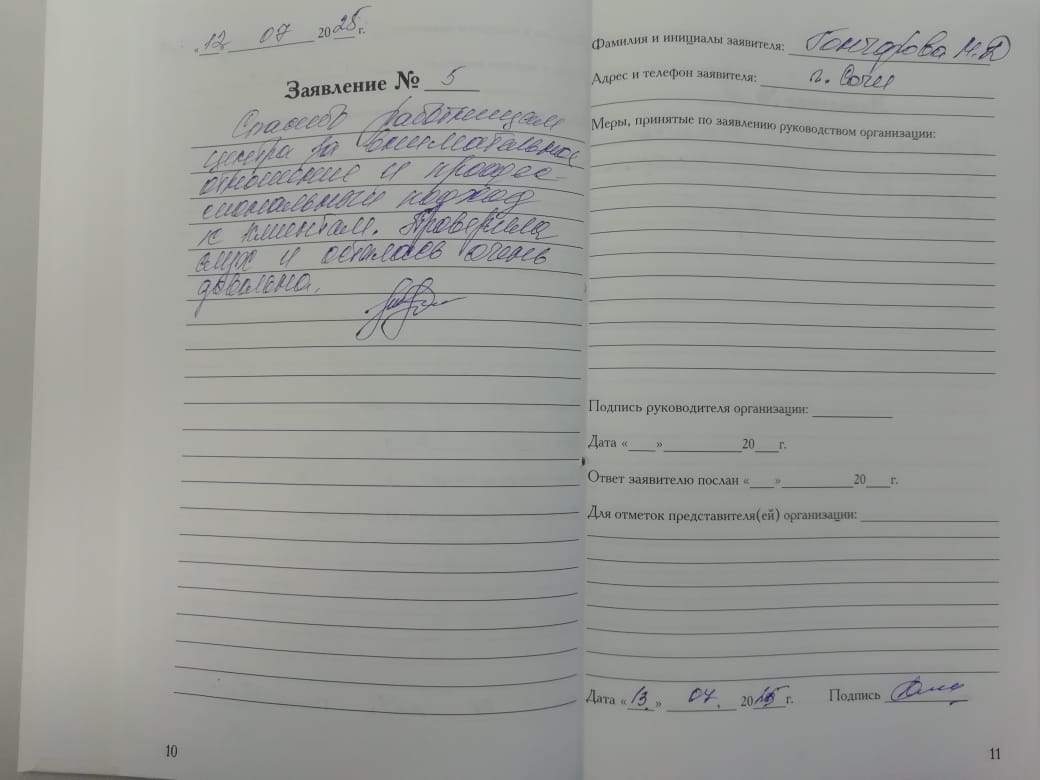 «12» 07 2025 г.
Заявление № 5
Спасибо работницам
центра за внимательное
отношение и профес-
сиональный подход
к клиентам. Проверила
слух и осталась очень
довольна.
10
Фамилия и инициалы заявителя: Гончарова Н.Д
Адрес и телефон заявителя: г. Сочи
Меры, принятые по заявлению руководством организации:
Подпись руководителя организации:
Дата «___» 20___г.
Ответ заявителю послан «___» 20___г.
Для отметок представителя(ей) организации:
Дата «13» 07. 2025 г. Подпись
11